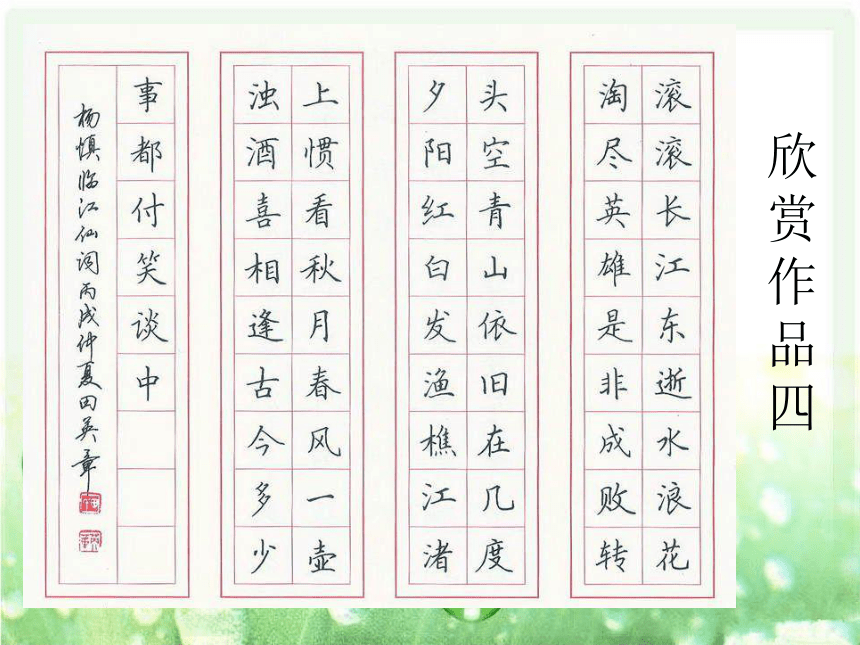 欣赏作品四
滚滚长江东逝水浪花
淘尽英雄是非成败转
头空青山依旧在几度
夕阳红白发渔樵江渚
上惯看秋月春风一壶
浊酒喜相逢古今多少
事都付笑谈中
杨慎临江仙词丙戌仲夏田英章